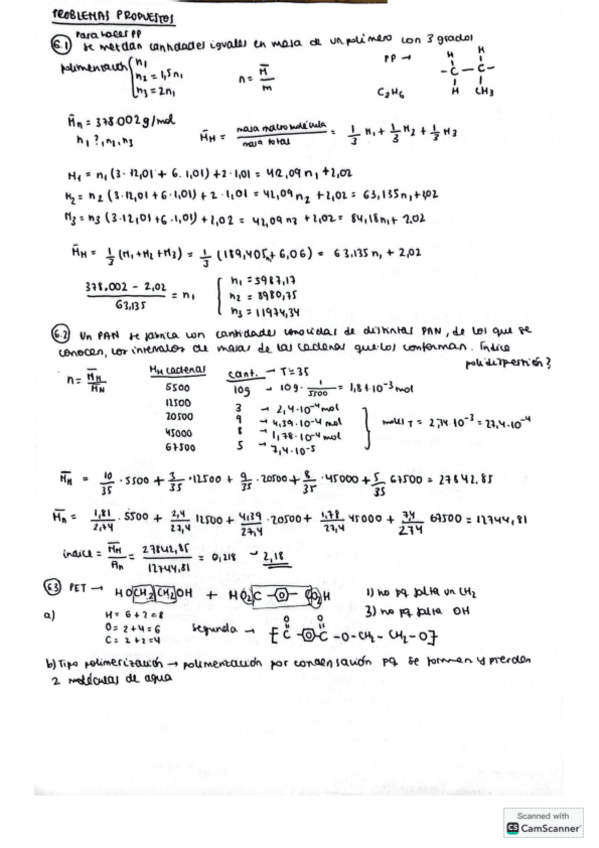 PROBLEMAS PROPUESTOS
Para hacer PP
6.1 Se mezclan cantidades iguales en masa de un polimero con 3 grados
polimerización { n1
n2 = 1,5n1
n3 = 2n1
n = M̄/m
PP →
H H
-C-C-
H CH3
C3H6
M̄n = 378.002 g/mol
n1?, n2, n3
M̄M = masa macromolécula / masa total = 1/3 M1 + 1/3 M2 + 1/3 M3
M1 = n1 (3·12,01 + 6·1,01) + 2·1,01 = 42,09n1 + 2,02
M2 = n2 (3·12,01 + 6·1,01) + 2·1,01 = 42,09n2 + 2,02 = 63,135n1 + 2,02
M3 = n3 (3·12,01 + 6·1,01) + 2,02 = 42,09n3 + 2,02 = 84,18n1 + 2,02
M̄M = 1/3 (M1 + M2 + M3) = 1/3 (189,405n1 + 6,06) = 63,135n1 + 2,02
378.002 - 2,02 / 63,135 = n1
{ n1 = 5987,17
n2 = 8980,75
n3 = 11974,34
6.2 Un PAN se fabrica con cantidades conocidas de distintas PAN, de los que se
conocen, los intervalos de masa de las cadenas que los conforman. Índice
polidispersión?
n = M̄M/M̄N
MM cadenas cant. → T = 35
5500 10g → 10g · 1/5500 = 1,81·10⁻³ mol
12500 3 → 2,4·10⁻⁴ mol
20500 9 → 4,39·10⁻⁴ mol
45000 8 → 1,78·10⁻⁴ mol
67500 5 → 7,4·10⁻⁵
} moles T = 2,74·10⁻³ = 27,4·10⁻⁴
M̄M = 10/35 · 5500 + 3/35 · 12500 + 9/35 · 20500 + 8/35 · 45000 + 5/35 67500 = 27842,85
M̄n = 1,81/2,74 · 5500 + 2,4/27,4 12500 + 4,39/27,4 · 20500 + 1,78/27,4 45000 + 7,4/274 67500 = 12744,81
índice = M̄M/M̄n = 27842,85/12744,81 = 0,218 → 2,18
6.3 PET → HOCH2CH2OH + HO2C-O-CO2H
1) no pq falta un CH2
3) no pq falta OH
a)
H = 6+2 = 8
O = 2+4 = 6
C = 2+2 = 4
segunda → [C-O-C-O-CH2-CH2-O]
O O
b) Tipo polimerización → polimerización por condensación pq se forman y pierden
2 moléculas de agua
Scanned with
CS CamScanner